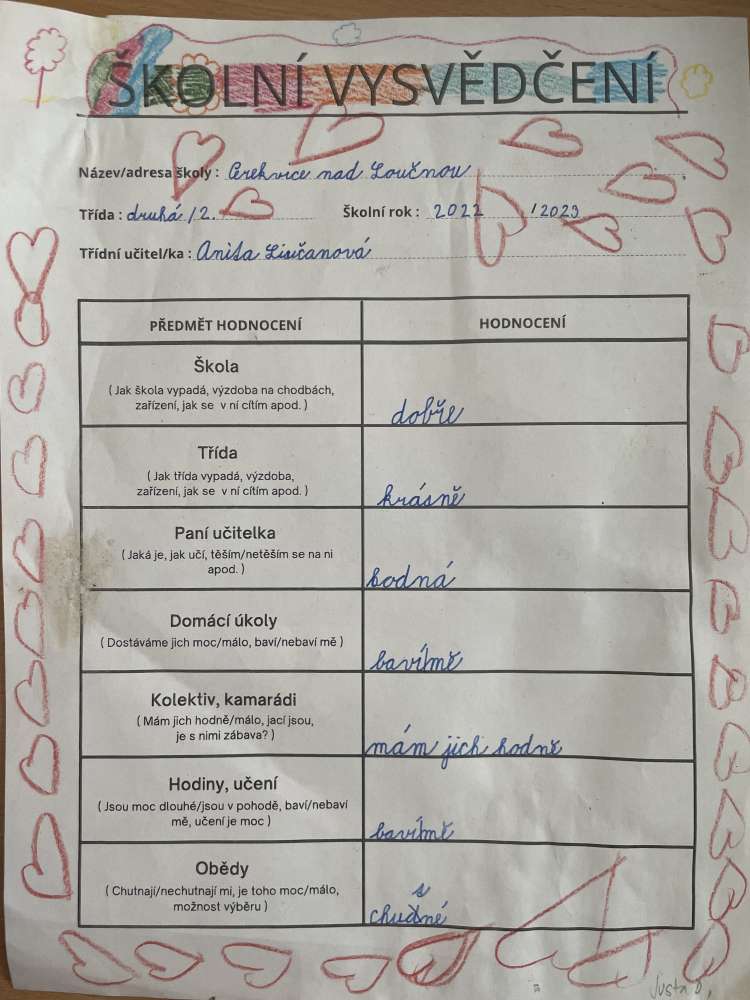 ŠKOLNÍ VYSVĚDČENÍ
Název/adresa školy : Cerekvice nad Loučnou
Třída : druhá /2. Školní rok : 2022 / 2023
Třídní učitel/ka : Anita Lisičanová
PŘEDMĚT HODNOCENÍ HODNOCENÍ
Škola
( Jak škola vypadá, výzdoba na chodbách,
zařízení, jak se v ní cítím apod. )
dobře
Třída
( Jak třída vypadá, výzdoba,
zařízení, jak se v ní cítím apod. )
krásně
Paní učitelka
( Jaká je, jak učí, těším/netěším se na ni
apod. )
hodná
Domácí úkoly
( Dostáváme jich moc/málo, baví/nebaví mě )
bavímě
Kolektiv, kamarádi
( Mám jich hodně/málo, jací jsou,
je s nimi zábava? )
mám jich hodně
Hodiny, učení
( Jsou moc dlouhé/jsou v pohodě, baví/nebaví
mě, učení je moc )
bavímě
Obědy
( Chutnají/nechutnají mi, je toho moc/málo,
možnost výběru )